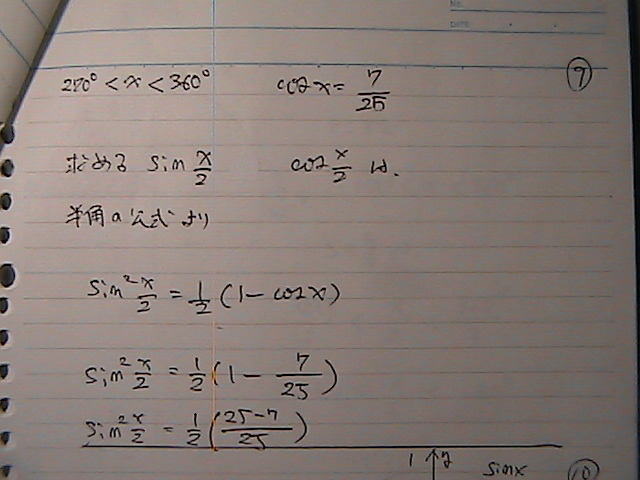 No.
DATE
270° < x < 360° cos x = 7/25 ⑨
求める sin x/2 cos x/2 は.
半角の公式より
sin² x/2 = 1/2 (1 - cos x)
sin² x/2 = 1/2 (1 - 7/25)
sin² x/2 = 1/2 ((25-7)/25)
1 ↑y sin x ⑩